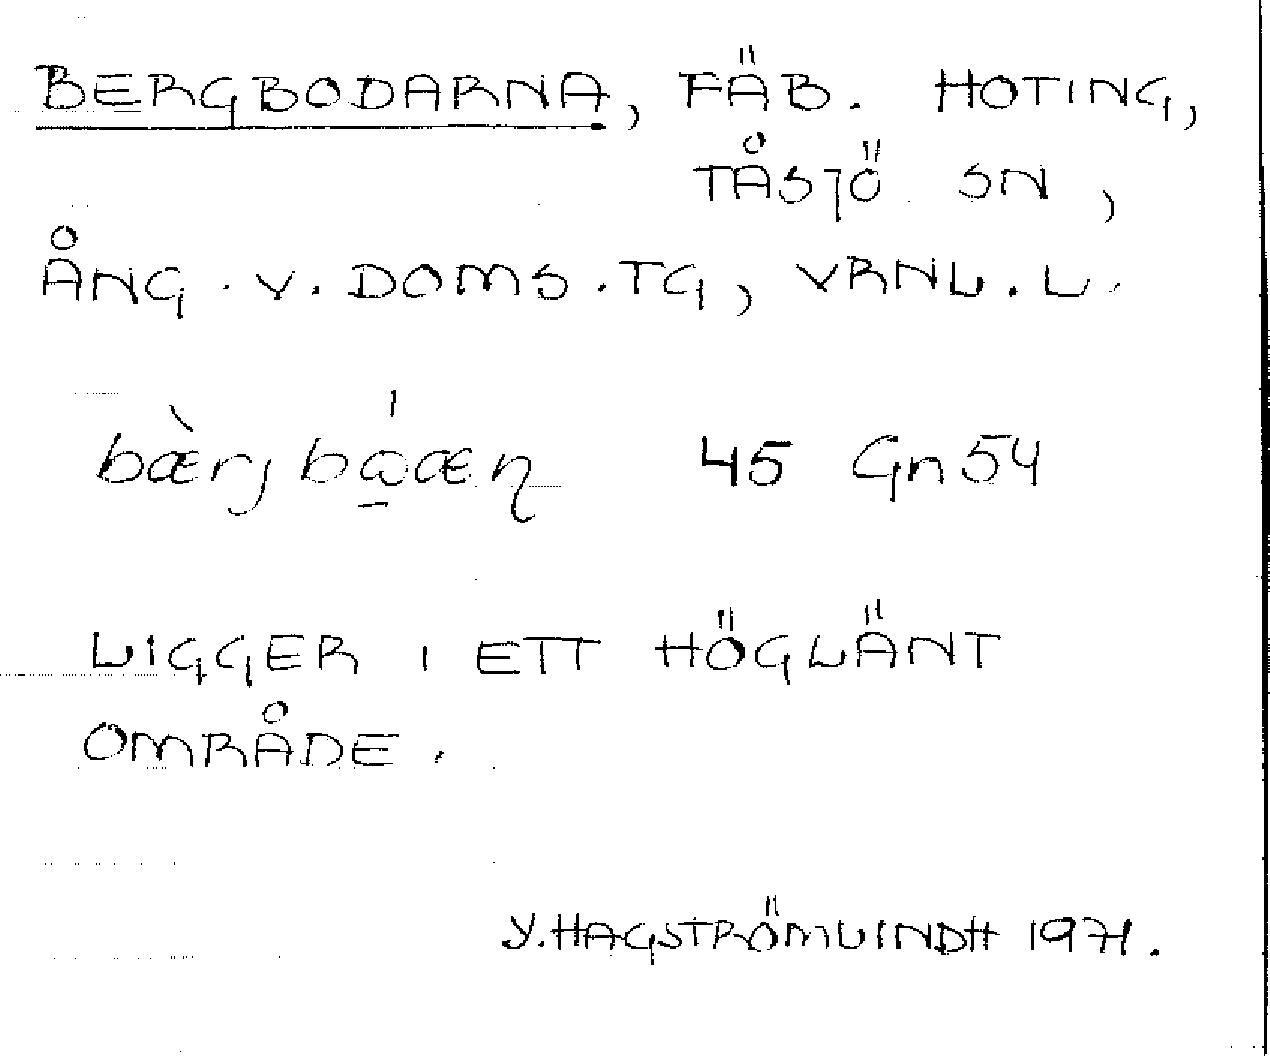 BERGBODARNA, FÄB. HOTING,
TÅSJÖ SN,
ÅNG. V. DOMS.TG, VRNL. L.
45 Gn54
LIGGER I ETT HÖGLÄNT
OMRÅDE.
Y. HAGSTRÖMLINDH 1971.